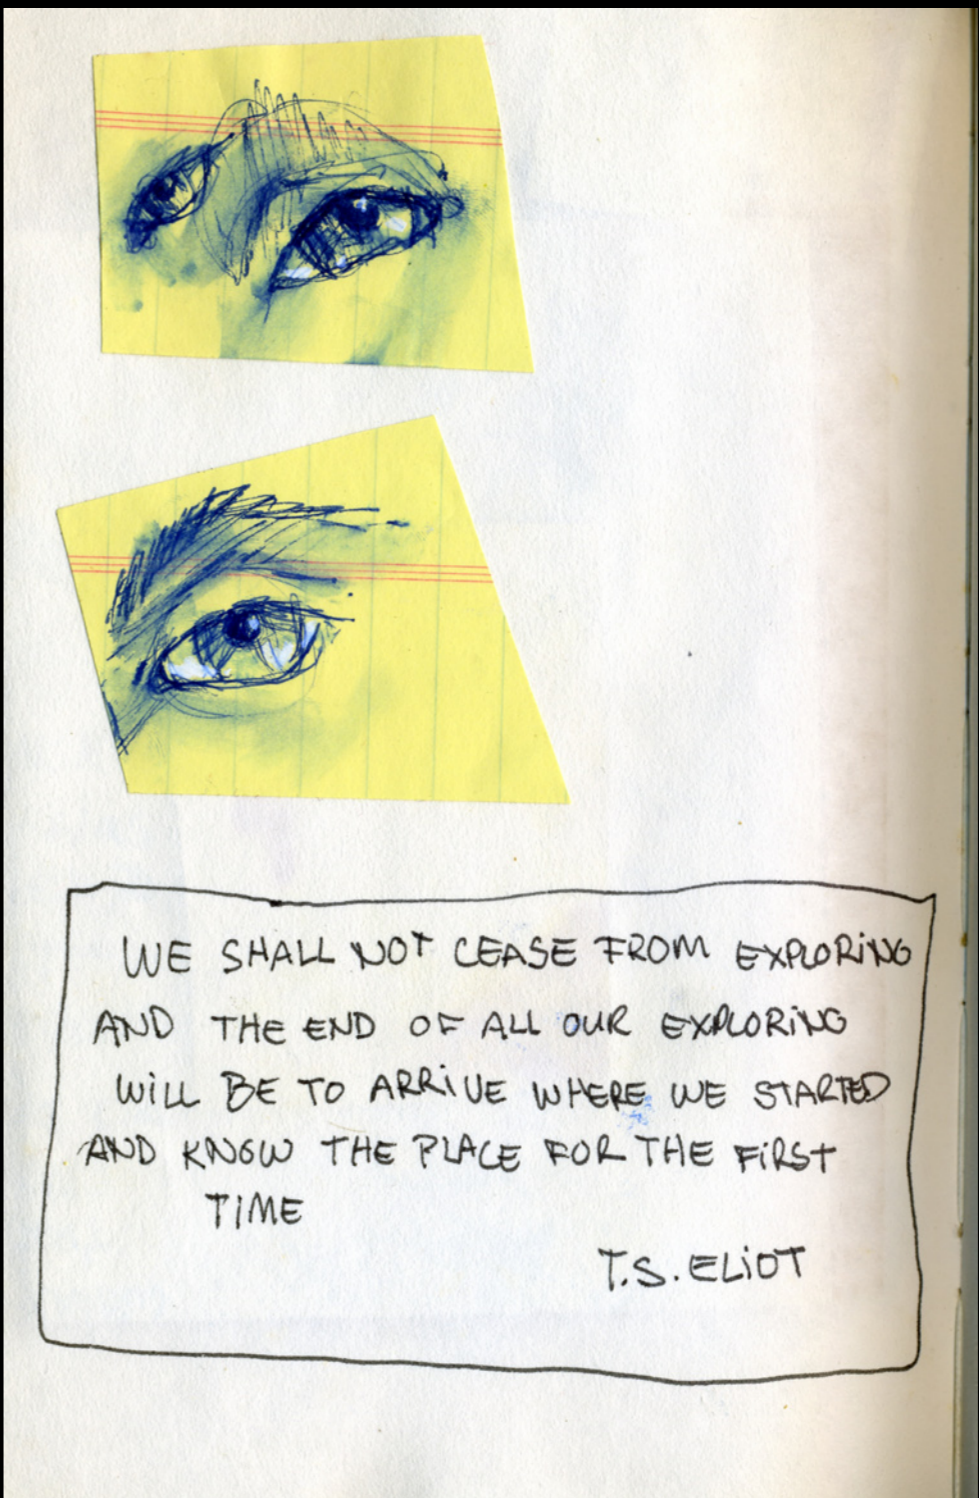 WE SHALL NOT CEASE FROM EXPLORING
AND THE END OF ALL OUR EXPLORING
WILL BE TO ARRIVE WHERE WE STARTED
AND KNOW THE PLACE FOR THE FIRST
TIME
T.S. ELIOT